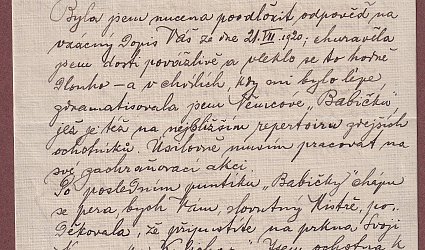 Byla jsem nucena poodložit odpověď na
vzácný Dopis Váš ze dne 21.VII.1920; churavěla
jsem dosti povážlivě a vleklo se to hodně
Dlouho – a v chvílích, kdy mi bylo lépe
zdramatisovala jsem Němcové „Babičku"
jež je též na nejbližším repertoiru zdejších
ochotníků. Usilovně musím pracovat na
své zachraňovací akci.
Po posledním puntíku „Babičky" chápu
se pera, bych Vám, slovutný Mistře, po,
Děkovala, že připustíte na prkna Svoji